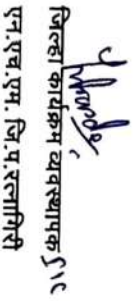 जिल्हा कार्यक्रम व्यवस्थापक
एन.एच.एम. जि.प.रत्नागिरी